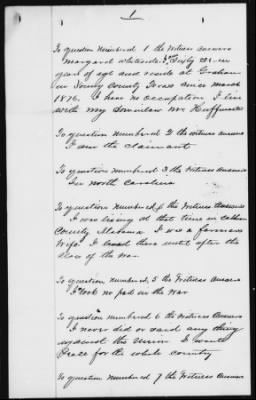 1
To question numbered 1 the witness answers
Margaret
years of age and reside at Graham
in Young County Texas since march
1876. I have no occupation I live
with my Soninlaw Mr Huffmaster
To question numbered 2 the witness answers
I am the claimant
To question numbered 3 the Witness Answers
In north Carolina
To question numbered 4 the Witness Answers
I was living at that time in Calhoun
County Alabama I was a farmers
Wife I lived there until after the
close of the war
To question numbered 5 the Witness Answers
I took no part in the War
To question numbered 6 the Witness Answers
I never did or said any thing
against the Union I wanted
Peace for the whole Country
To question numbered 7 the Witness Answers